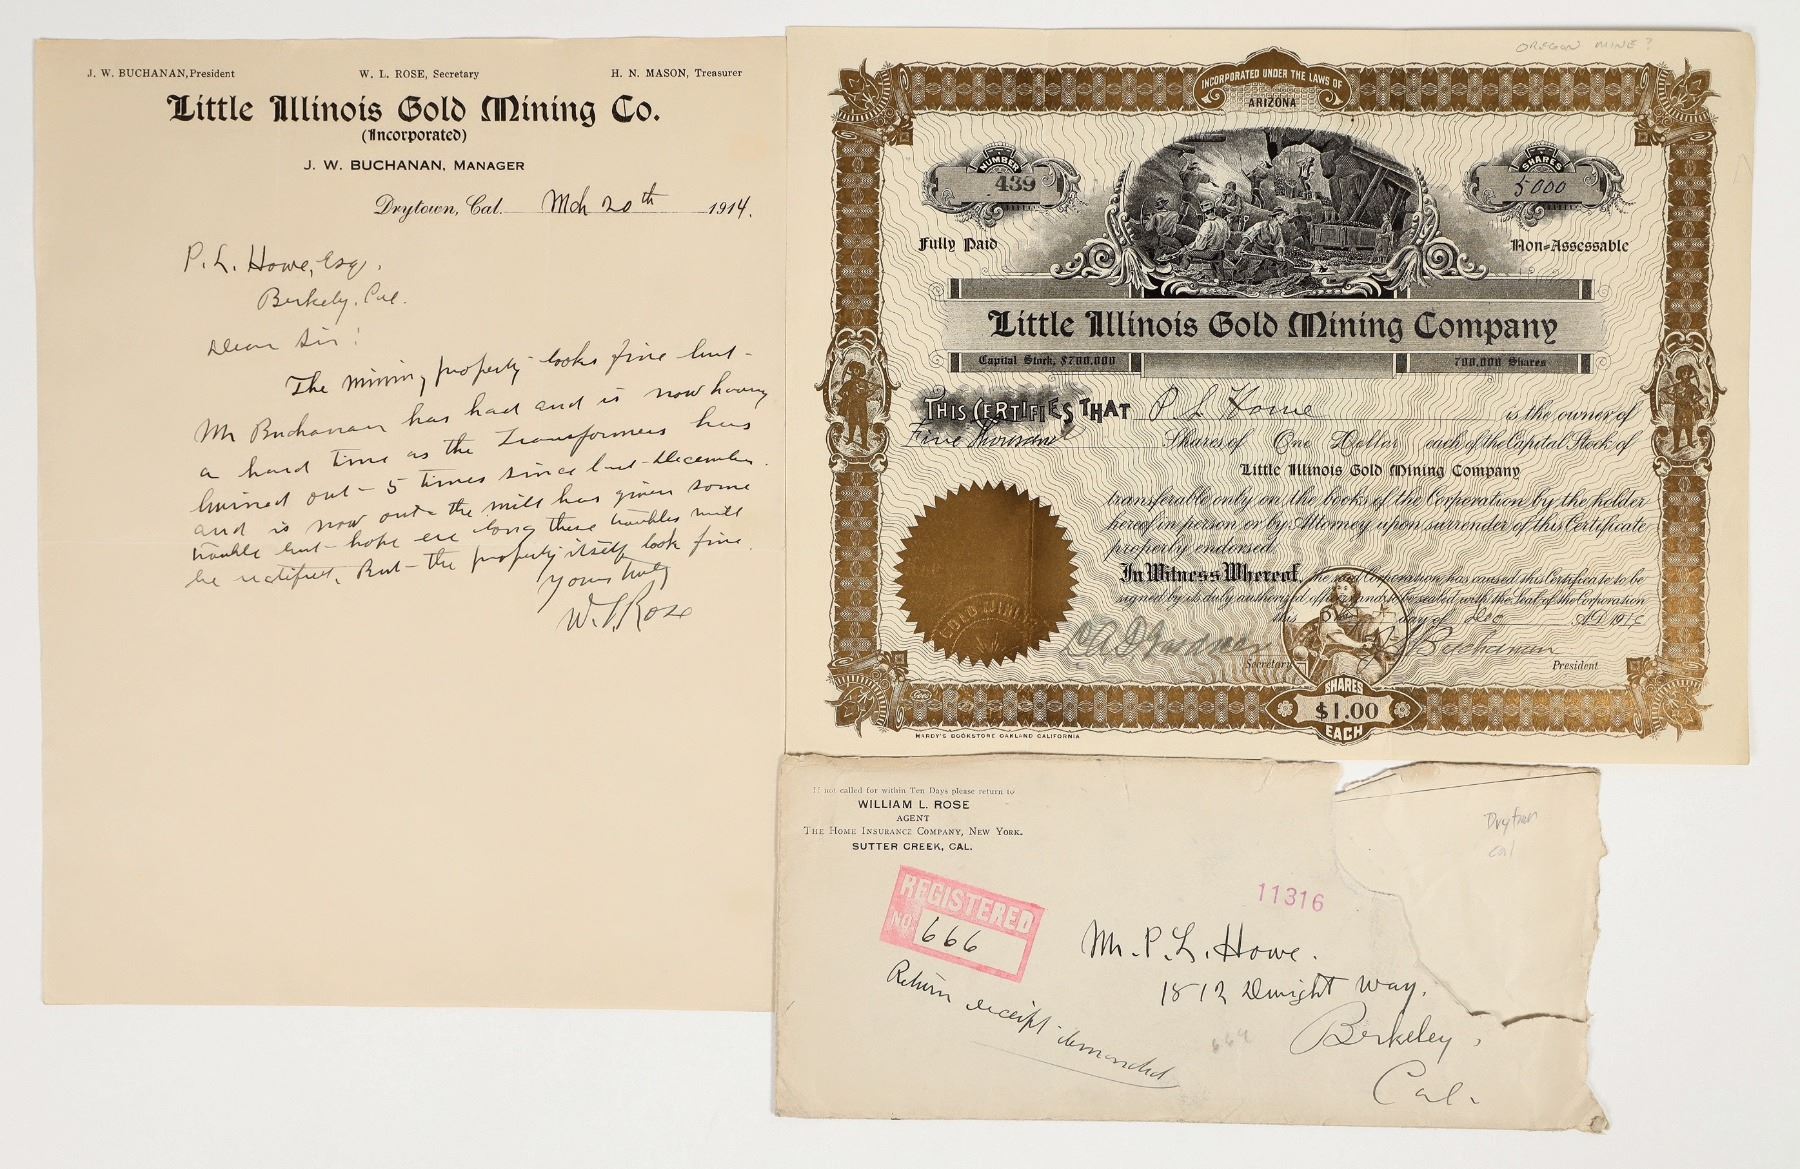 J. W. BUCHANAN, President W. L. ROSE, Secretary H. N. MASON, Treasurer
Little Illinois Gold Mining Co.
(Incorporated)
J. W. BUCHANAN, MANAGER
Drytown, Cal. Mch 20th 1914.
P. L. Howe, Esq.
Berkely, Cal.
Dear Sir:
The mining property looks fine but
Mr Buchanan has had and is now having
a hard time as the Transformers has
burned out 5 times since last December
and is now out & the mill has given some
trouble but hope ere long these troubles will
be rectified. But the property itself look fine.
Yours truly
W. L. Rose
OREGON MINE?
INCORPORATED UNDER THE LAWS OF
ARIZONA
NUMBER
439
SHARES
5000
Fully Paid
Non-Assessable
Little Illinois Gold Mining Company
Capital Stock, $700,000
700,000 Shares
THIS CERTIFIES THAT P L Howe is the owner of
Five Thousand Shares of One Dollar each of the Capital Stock of
Little Illinois Gold Mining Company
transferable only on the books of the Corporation by the holder
hereof in person or by Attorney upon surrender of this Certificate
properly endorsed.
In Witness Whereof, the said Corporation has caused this Certificate to be
signed by its duly authorized officers and to be sealed with the Seal of the Corporation
this day of Dec A.D. 191
GOLD MINING
Buchanan
Secretary
President
SHARES
$1.00
EACH
HARDY'S BOOKSTORE OAKLAND CALIFORNIA
If not called for within Ten Days please return to
WILLIAM L. ROSE
AGENT
THE HOME INSURANCE COMPANY, NEW YORK.
SUTTER CREEK, CAL.
Drytown
Cal
REGISTERED
NO.
666
11316
Mr. P. L. Howe.
1812 Dwight Way,
Berkeley,
Cal.
Return receipt demanded
664